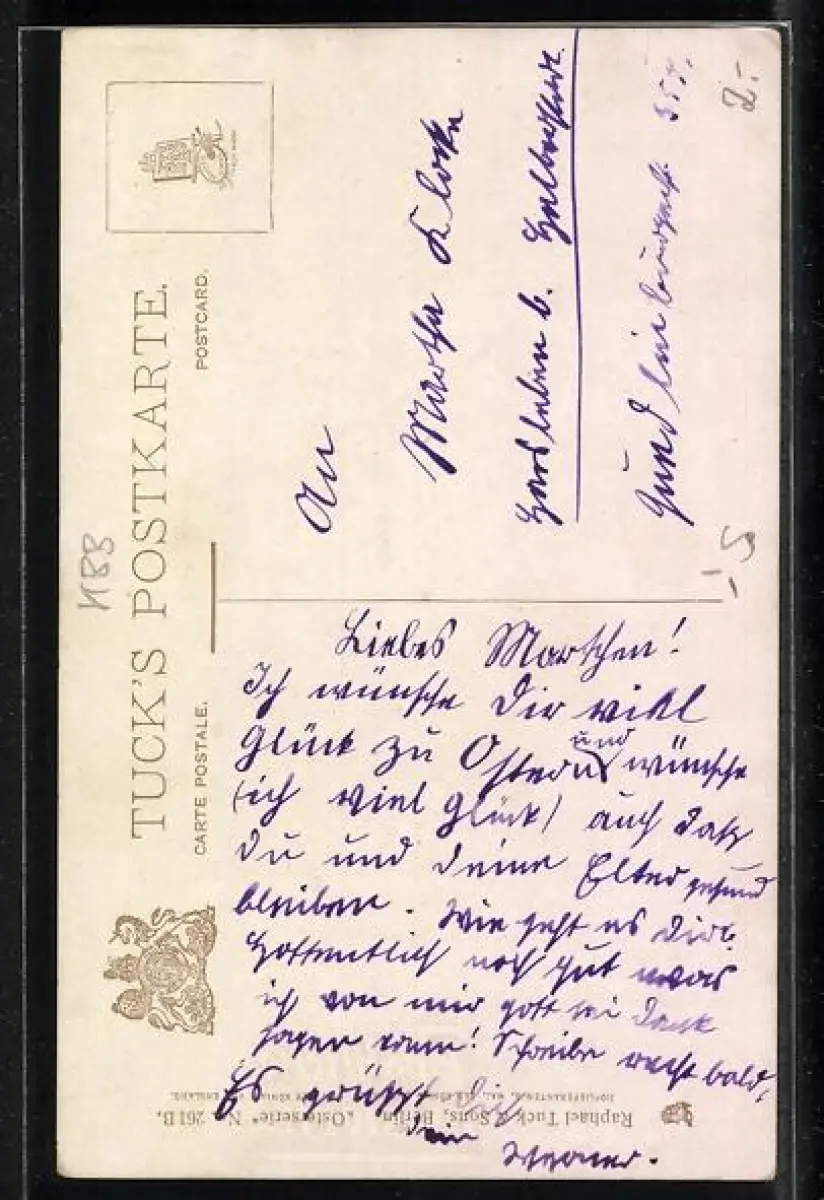 TUCK'S POSTKARTE.
CARTE POSTALE.
POSTCARD.
NBB
2.-
-.5
An
Martha Klocke
Harsleben b. Halberstadt
357.
Liebes Marthchen!
Ich wünsche Dir viel
Glück zu Ostern und wünsche
(ich viel Glück) auch daß
Du und Deine Elter gesund
bleiben. Wie geht es Dir.
Hoffentlich noch gut was
ich von mir gott sei Dank
sagen kann! Schreibe recht bald,
Es grüßt Dich
Dein
Werner.
Raphael Tuck & Sons, Berlin, „Osterserie“ No. 261B.